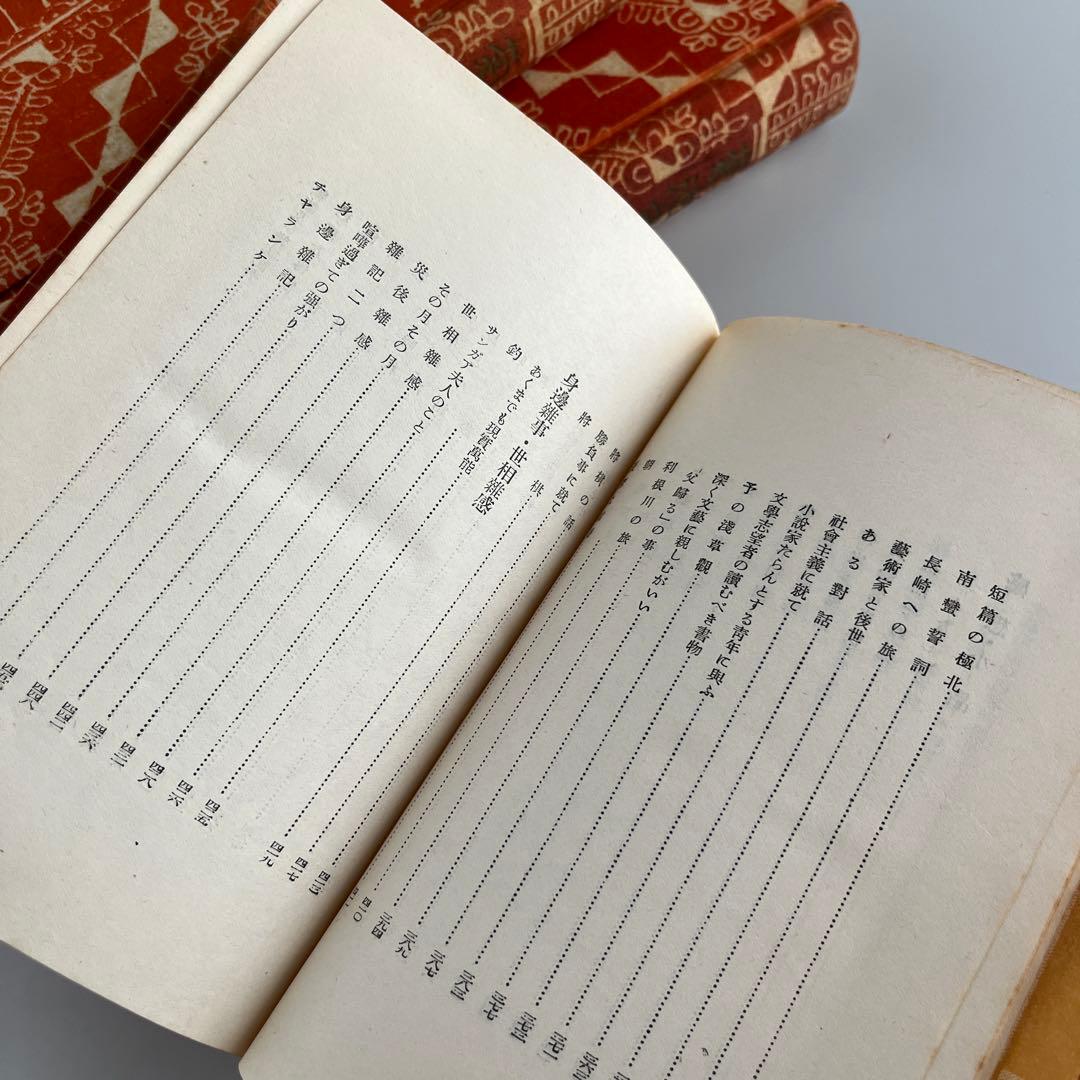 短篇の極北
南蠻誓詞
長崎への旅
藝術家と後世 三六三
ある對話 三七一
社會主義に就て 三七三
小說家たらんとする靑年に與ふ 三七七
文學志望者の讀むべき書物 三八三
予の淺草觀 三八七
深く文藝に親しむがいい 三八九
「父歸る」の事 三九四
利根川の旅 四一〇
將棋の話 四一三
勝負事に就て 四一七
將棋 四一九
身邊雜事・世相雜感
あくまでも現實萬能 四二五
釣 四二六
サンガア夫人のこと 四二八
世相雜感 四三二
その月その月 四三六
災後雜感 四四二
雜記二つ 四四八
喧嘩過ぎての强がり
身邊雜記
チャランケ